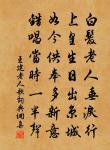 白髮老人垂淚行
上皇生日出京城
如今供奉多新意
錯唱當時一半聲
王建老人歌